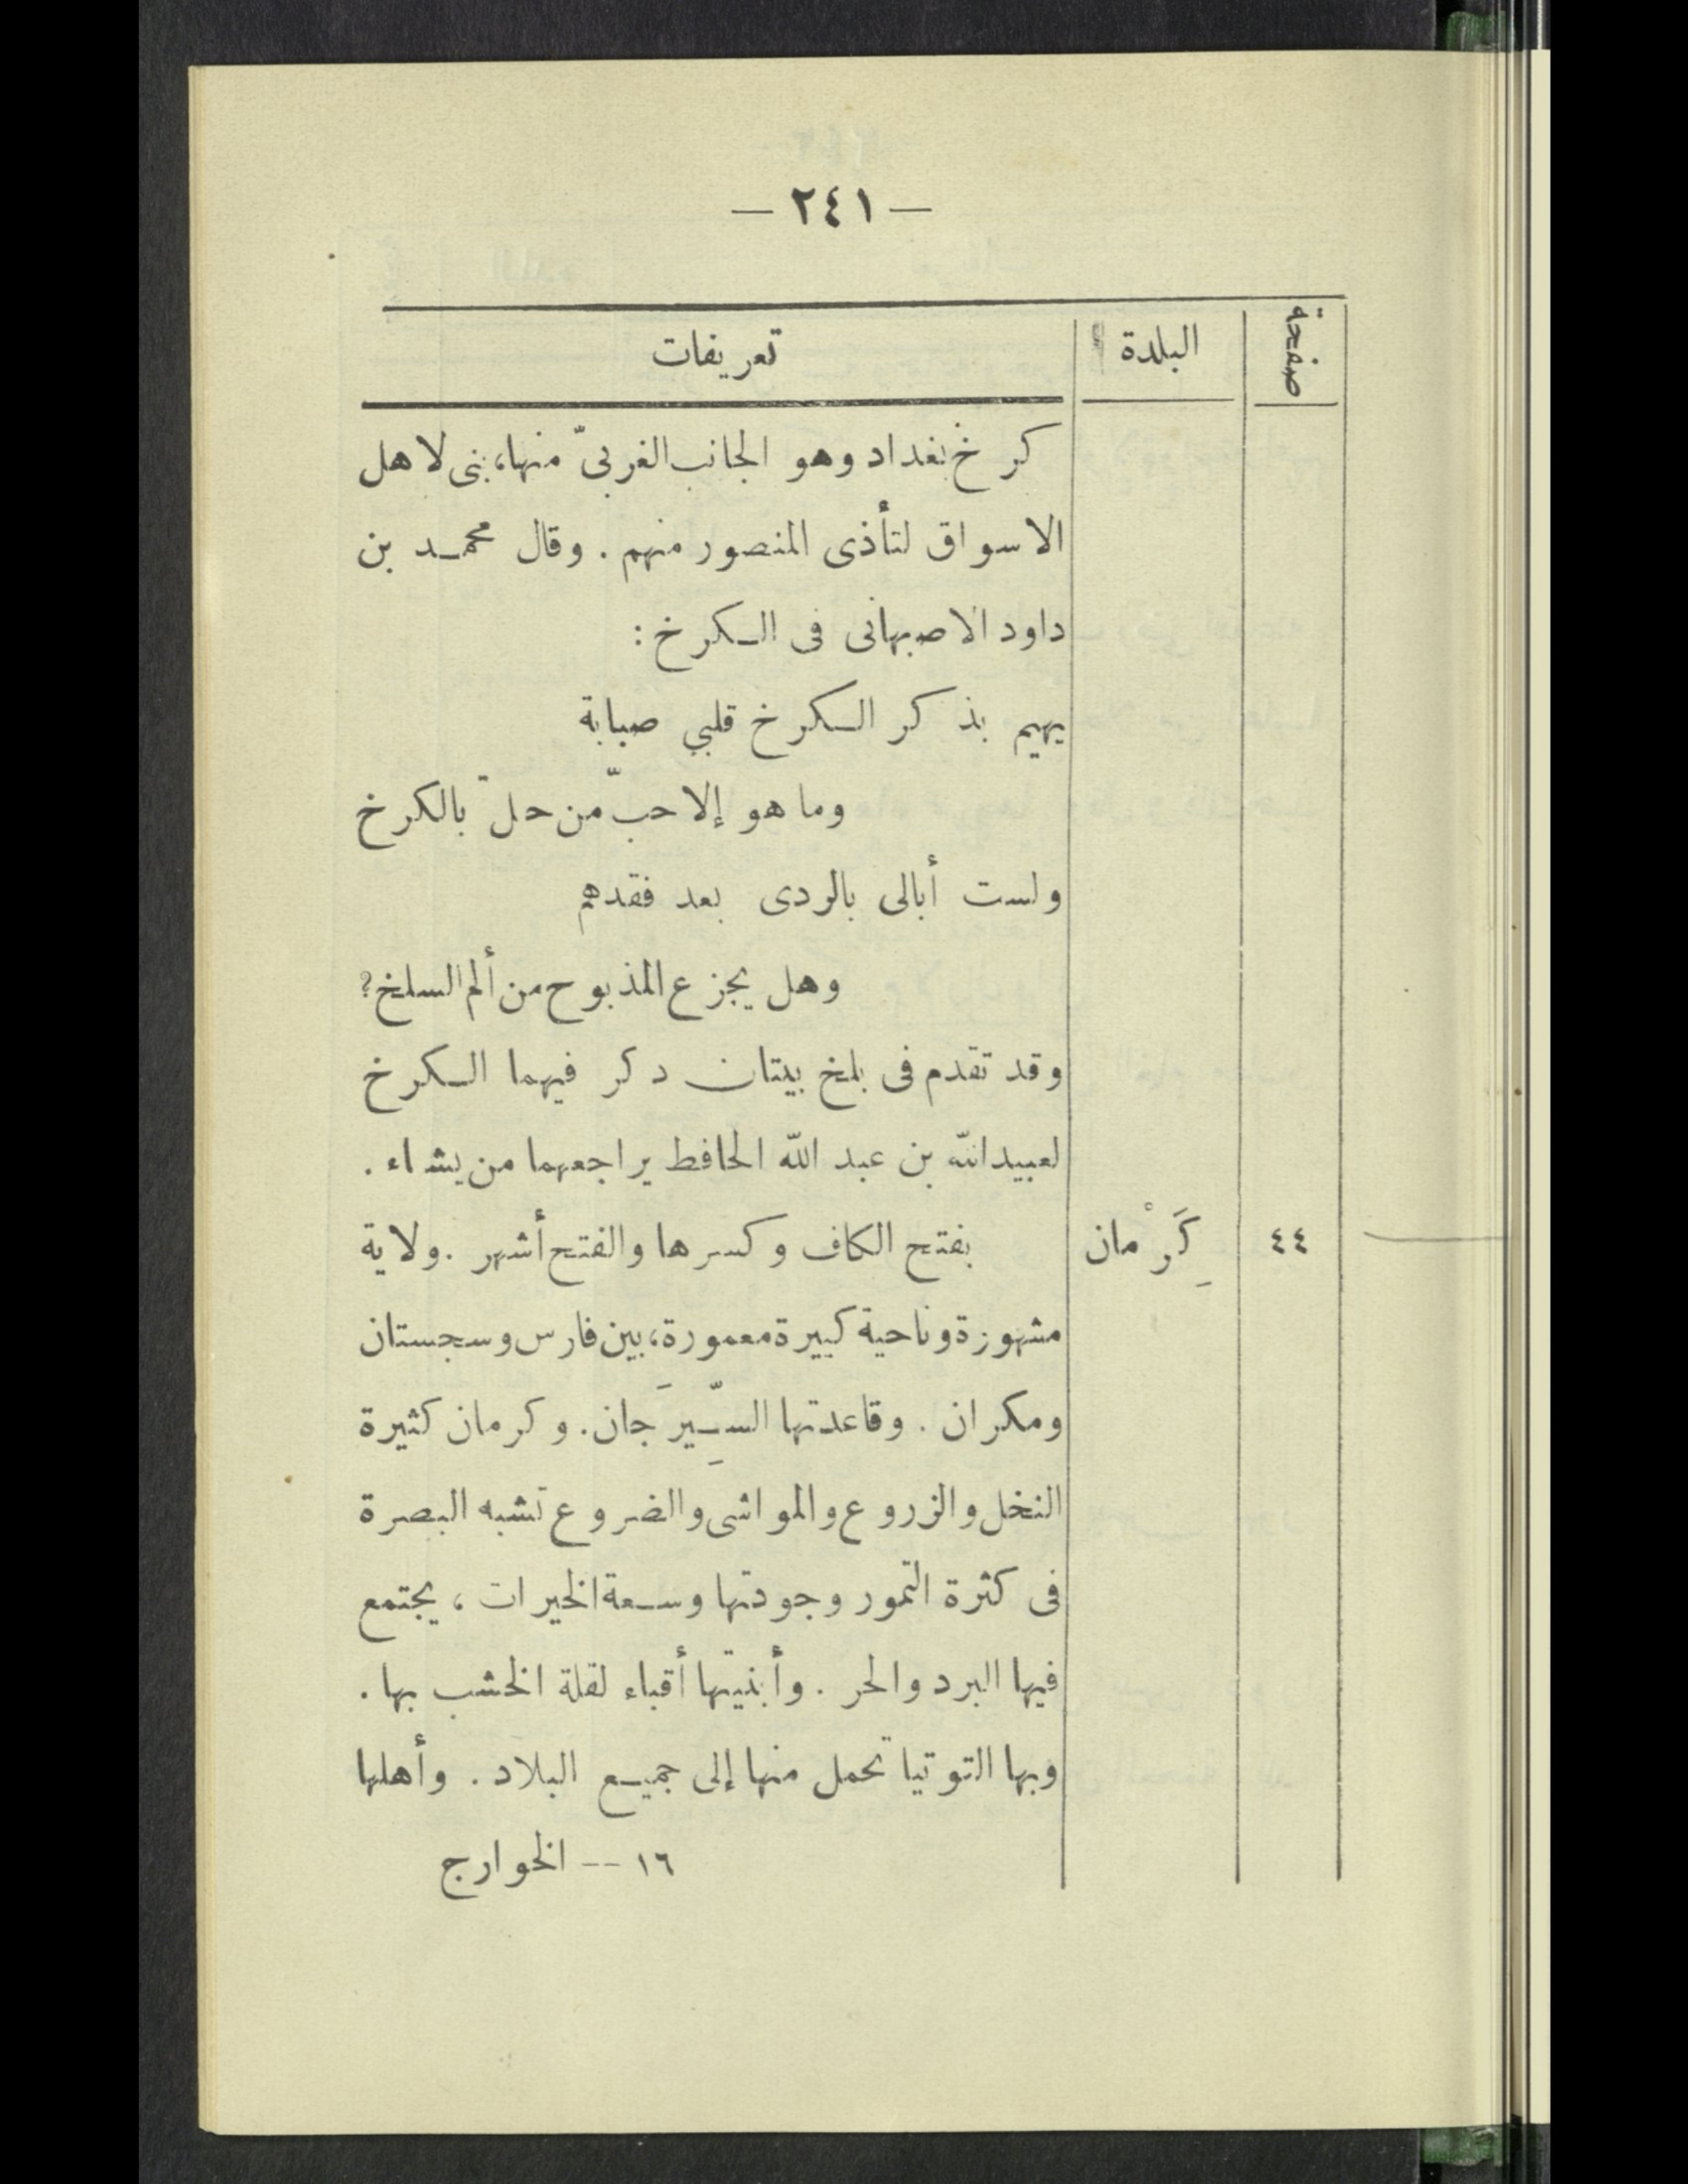 — ٢٤١ —
صفحة البلدة تعريفات
كرخ بغداد وهو الجانب الغربىّ منها، بنى لاهل
الاسواق لتأذى المنصور منهم . وقال محمد بن
داود الاصبهانى فى الكرخ :
يهيم بذكر الكرخ قلبي صبابة
وما هو إلا حبّ من حلّ بالكرخ
ولست أبالى بالردى بعد فقدهم
وهل يجزع المذبوح من ألم السلخ؟
وقد تقدم فى بلخ بيتان دكر فيهما الكرخ
لعبيد الله بن عبد الله الحافط يراجعهما من يشاء .
٤٤ كَِرْمان بفتح الكاف وكسرها والفتح أشهر . ولاية
مشهوزة وناحية كبيرة معمورة، بين فارس وسجستان
ومكران . وقاعدتها السِّيرَجان. وكرمان كثيرة
النخل والزروع والمواشى والضروع تشبه البصرة
فى كثرة التمور وجودتها وسعة الخيرات ، يجتمع
فيها البرد والحر . وأبنيتها أقباء لقلة الخشب بها .
وبها التوتيا تحمل منها إلى جميع البلاد . وأهلها
١٦ -- الخوارج